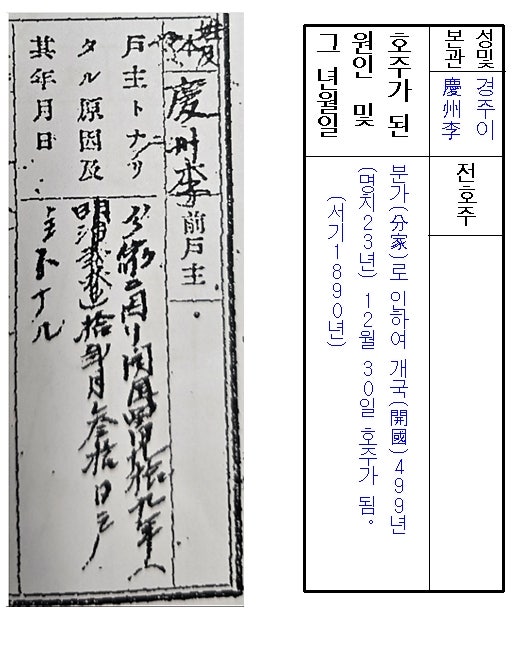 慶州李
前戶主
戶主トナリ
タル原因及
其年月日
分家ニ因リ開國四百九拾九年
拾貳月參拾日戶
主トナル
성및
본관
경주이
慶州李
전호주
호주가 된
원인 및
그 년월일
분가(分家)로 인하여 개국(開國)499년
(명치23년) 12월 30일 호주가 됨。
(서기1890년)